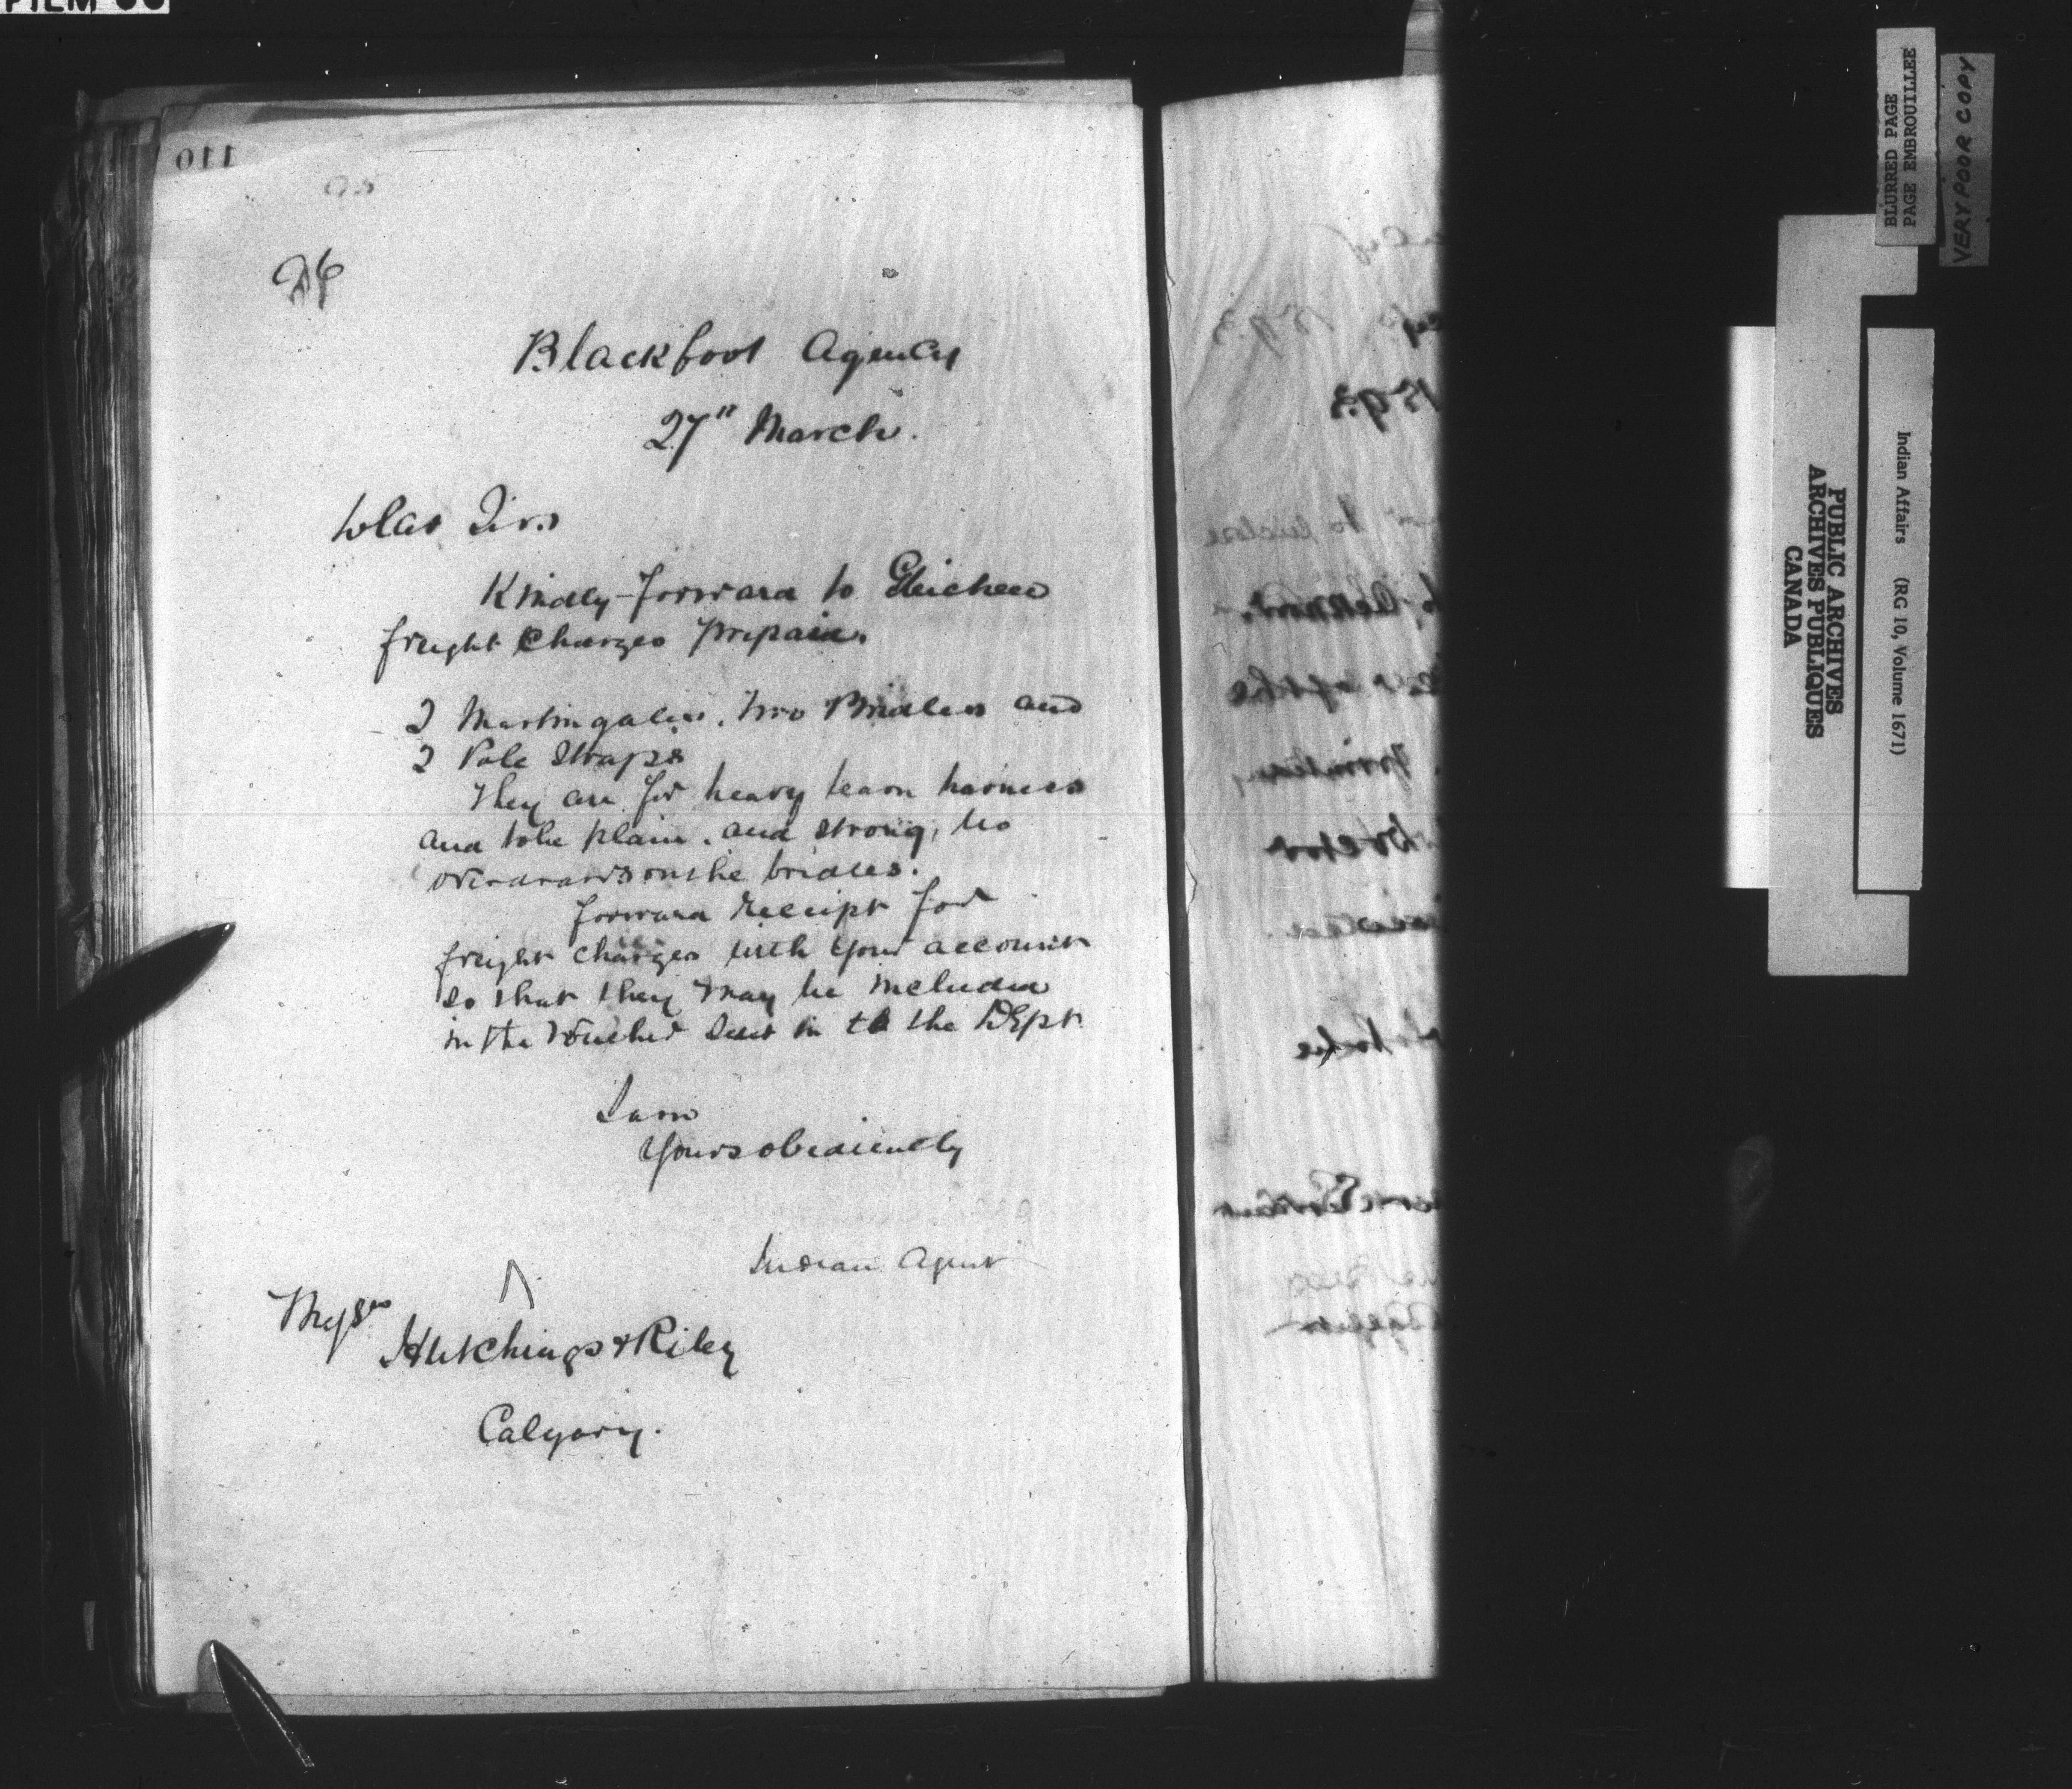 110
95
96
Blackfoot Agency
27" March.
Dear Sirs
Kindly forward to Gleichen
freight charges prepaid.
2 Martingales. two Bridles and
2 Pole Straps
They are for heavy team harness
and to be plain. and strong, no
overdraws on the bridles.
forward receipt for
freight charges with your account
so that they may be included
in the voucher sent in to the Dept
I am
Yours obediently
Indian Agent
Messrs
Hutchings & Riley
Calgary.
1893
1893
to enclose
BLURRED PAGE
PAGE EMBROUILLEE
VERY POOR COPY
PUBLIC ARCHIVES
ARCHIVES PUBLIQUES
CANADA
Indian Affairs (RG 10, Volume 1671)